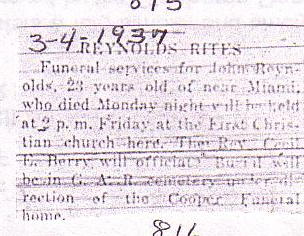 815
3-4-1937
REYNOLDS RITES
Funeral services for John Reyn-
olds, 23 years old of near Miami,
who died Monday night will be held
at 2 p. m. Friday at the First Chris-
tian church here. The Rev. Cecil
E. Berry will officiate. Burial will
be in G. A. R. cemetery under di-
rection of the Cooper Funeral
home.
816